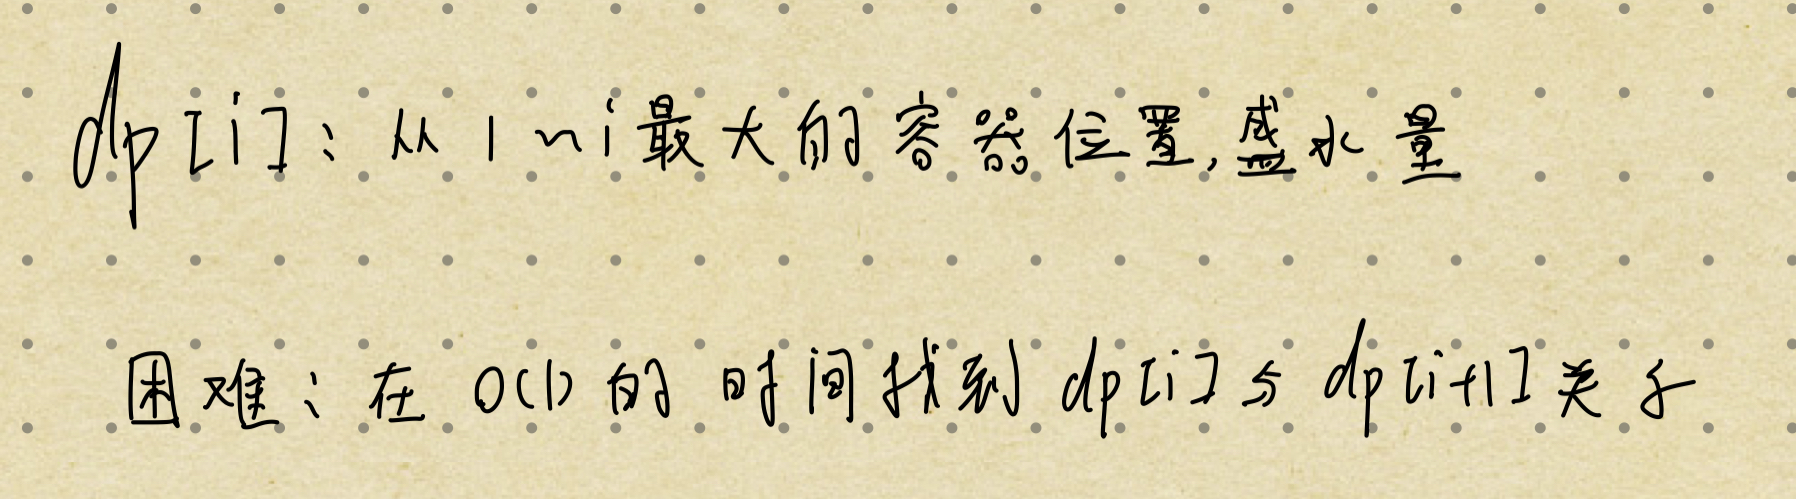 dp[i]: 从1~i最大的容器位置,盛水量
困难: 在O(1)的时间找到dp[i]与dp[i+1]关系